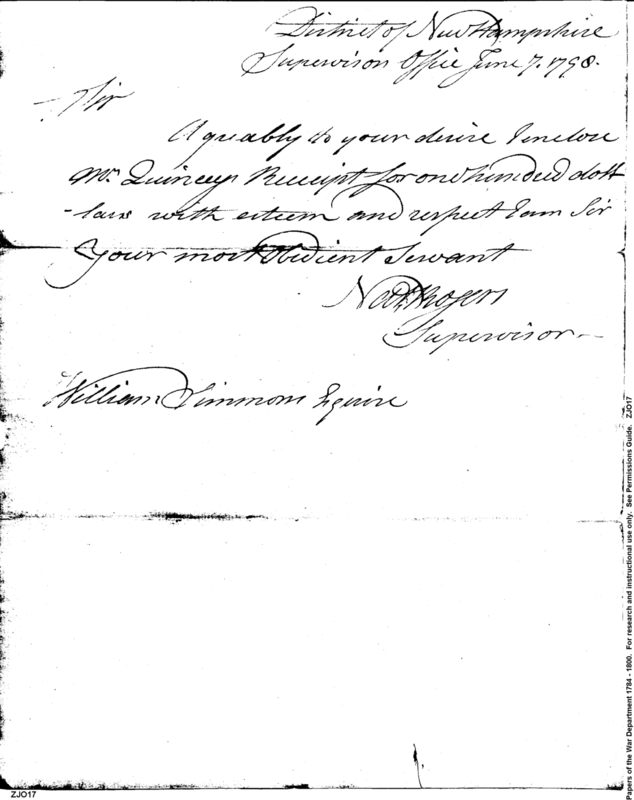 District of New Hampshire
Supervisors Office June 7. 1798.
Sir
Agreably to your desire I inclose
Mr. Quinceys Receipt for one hundred doll
-lars with esteem and respect I am Sir
Your most Obedient Servant
Natl. Rogers
Supervisor
William Simmons Esquire
Papers of the War Department 1784 - 1800. For research and instructional use only. See Permissions Guide. ZJO17
ZJO17